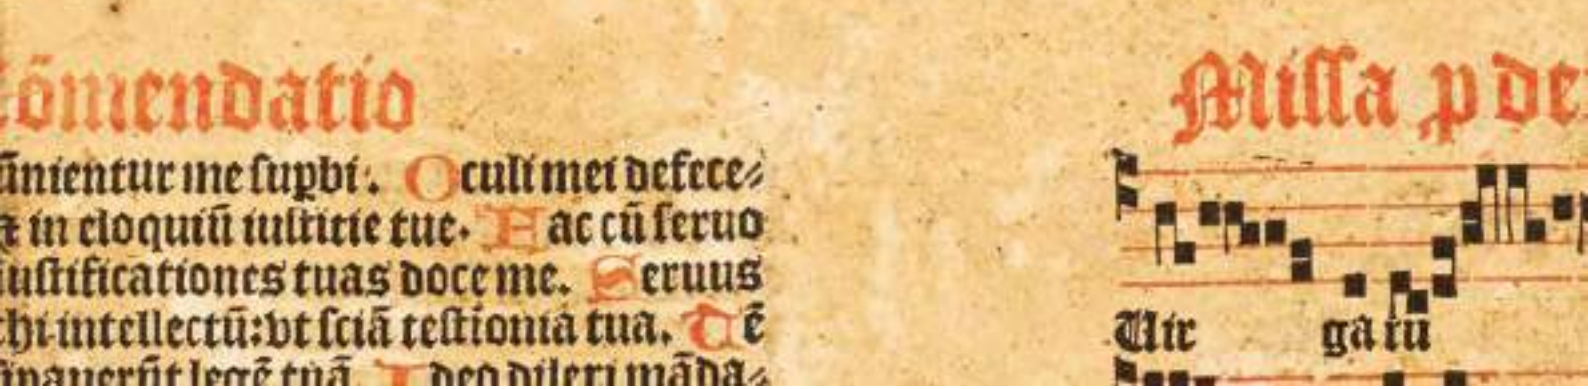 cōmendatio
ūnientur me ſuꝑbi. Oculi mei defece⸗
⁊ in eloquiū iuſticie tue. Fac cū ſeruo
iuſtificationes tuas doce me. Seruus
chi intellectū: vt ſciā teſtionia tua. Tē
ſipauerūt legē tuā. Ideo dilexi māda⸗
Miſſa ꝓ de
Uir ga tu